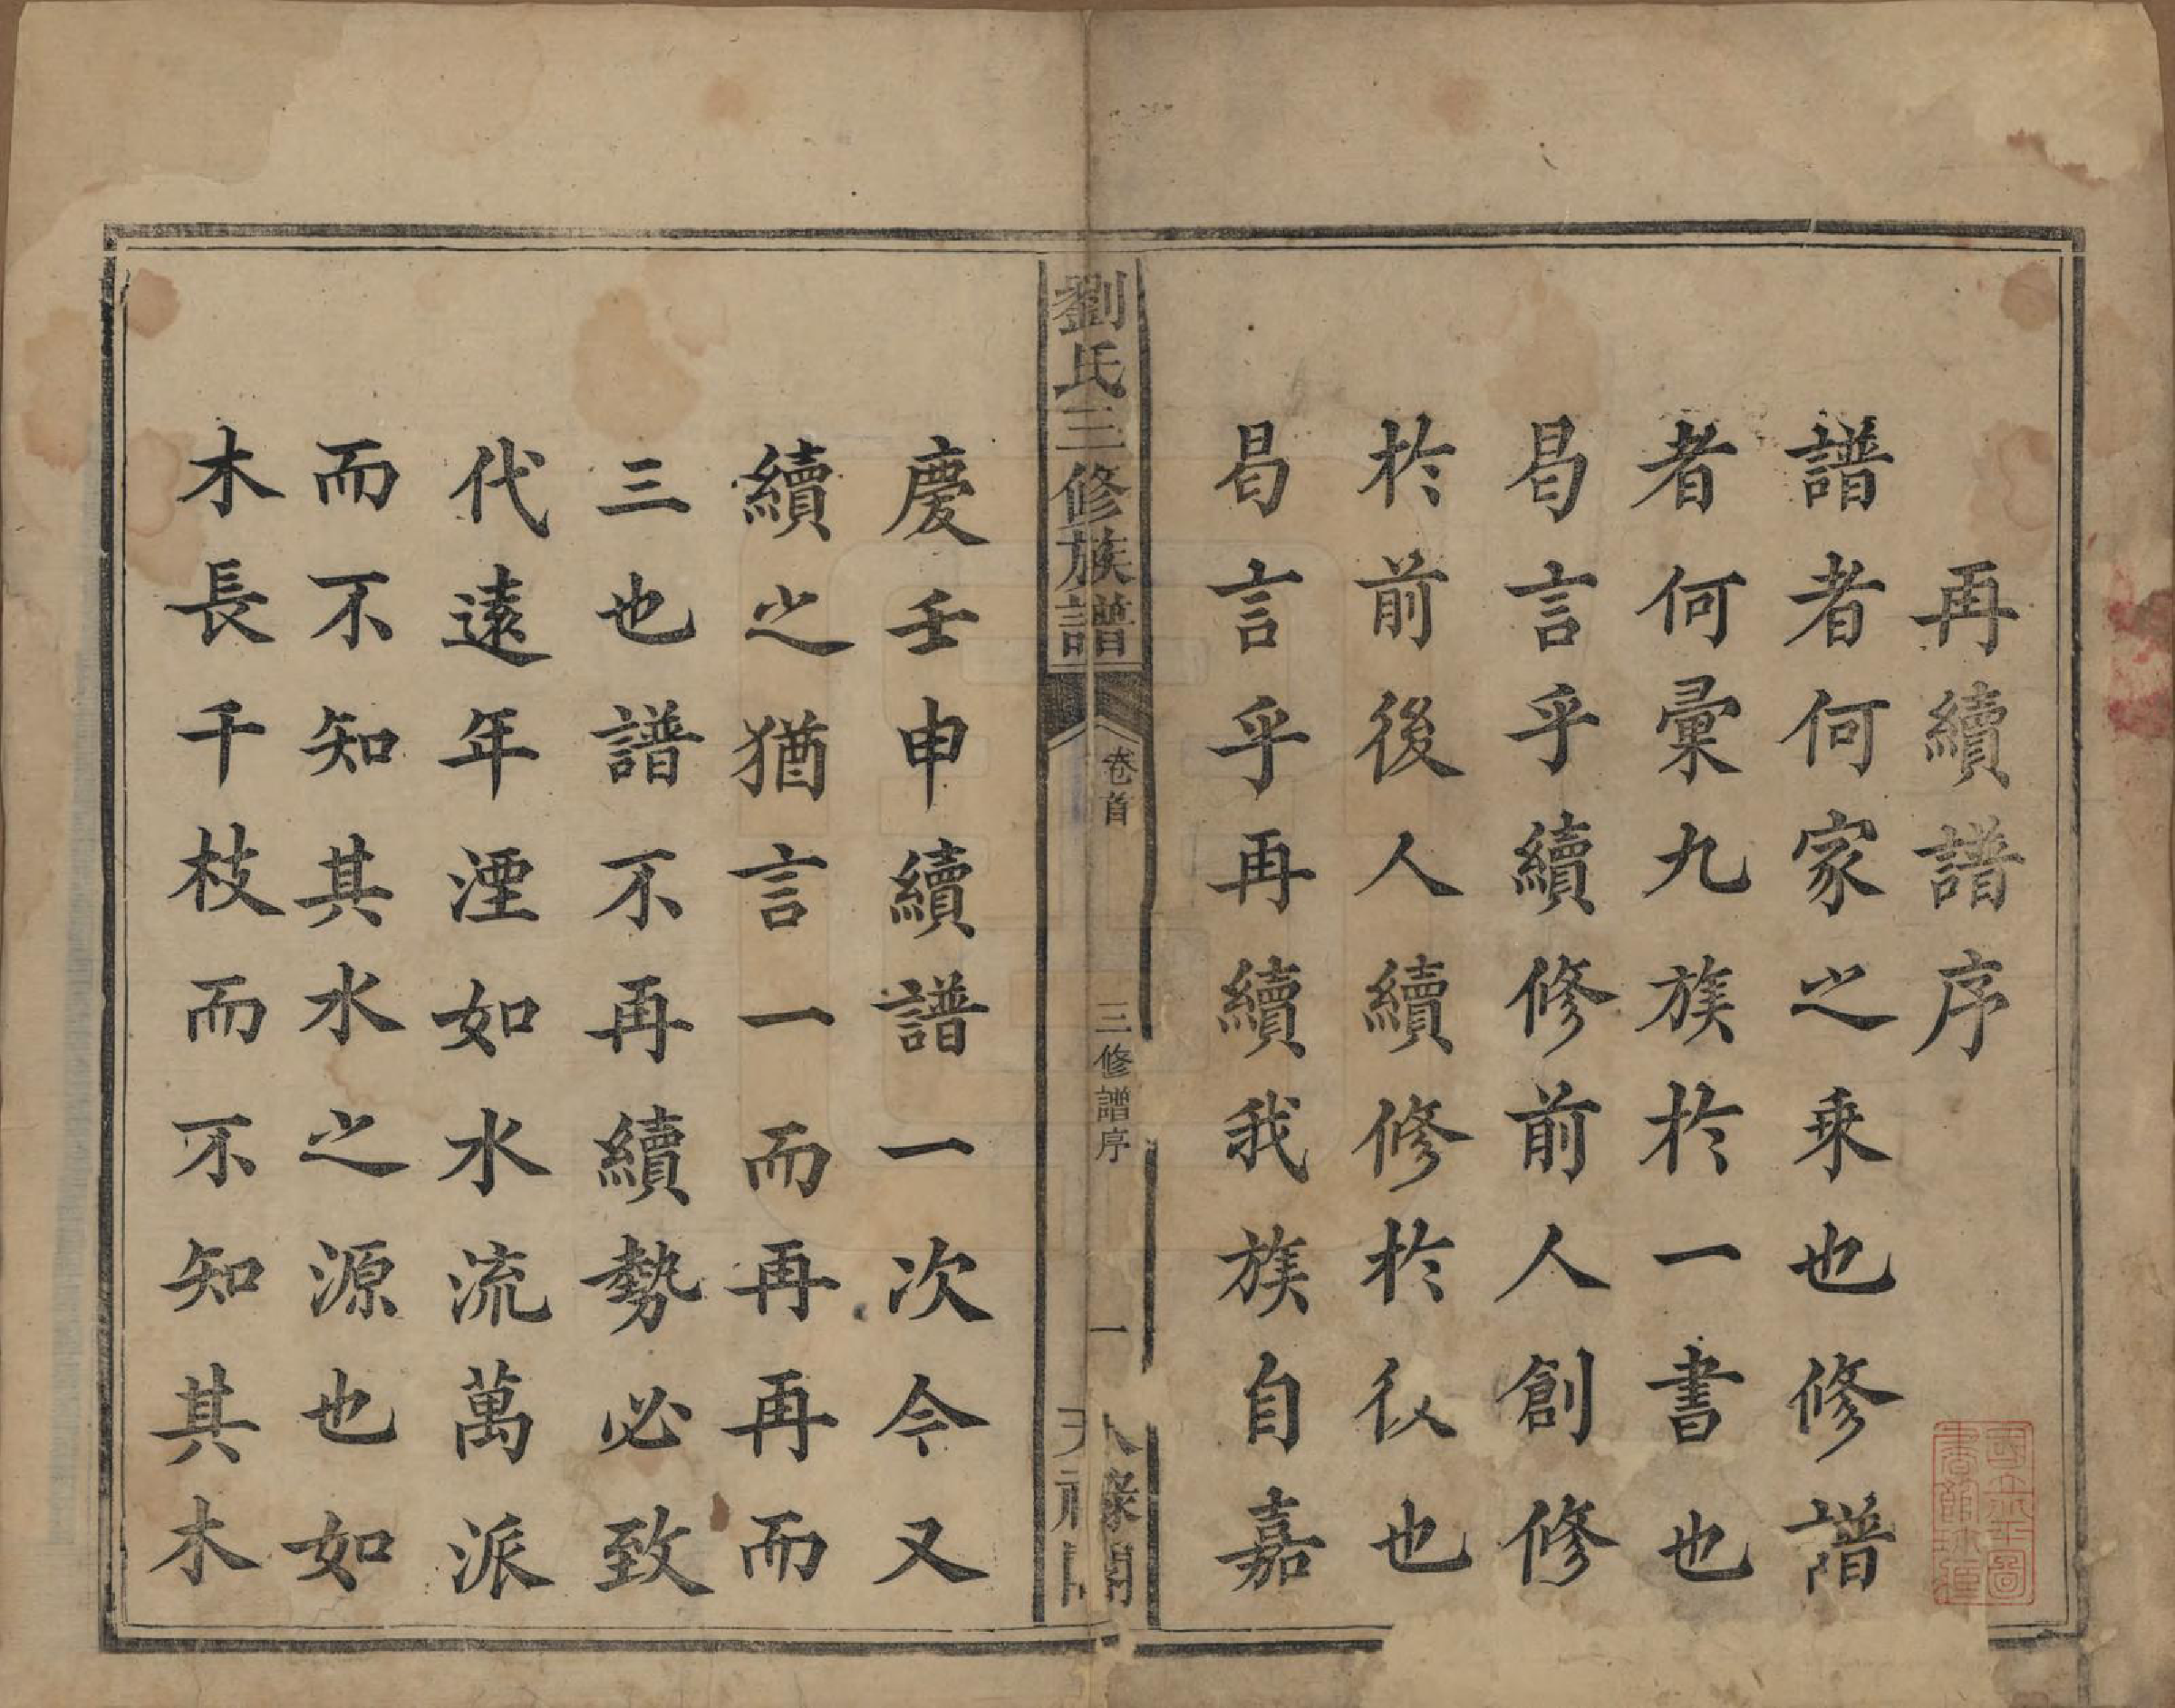 再續譜序
譜者何家之乘也修譜
者何彙九族於一書也
曷言乎續修前人創修
於前後人續修於後也
曷言乎再續我族自嘉
劉氏三修族譜
卷首
三修譜序
一
慶壬申續譜一次今又
續之猶言一而再再而
三也譜不再續勢必致
代遠年湮如水流萬派
而不知其水之源也如
木長千枝而不知其木